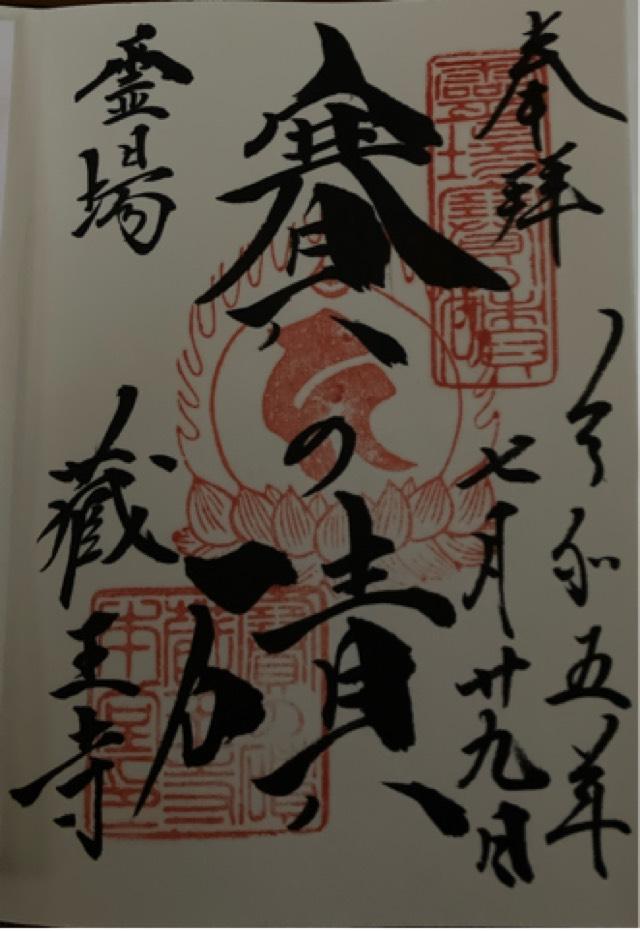 奉拝
令和五年
七月廿九日
賽の磧
霊場
蔵王寺